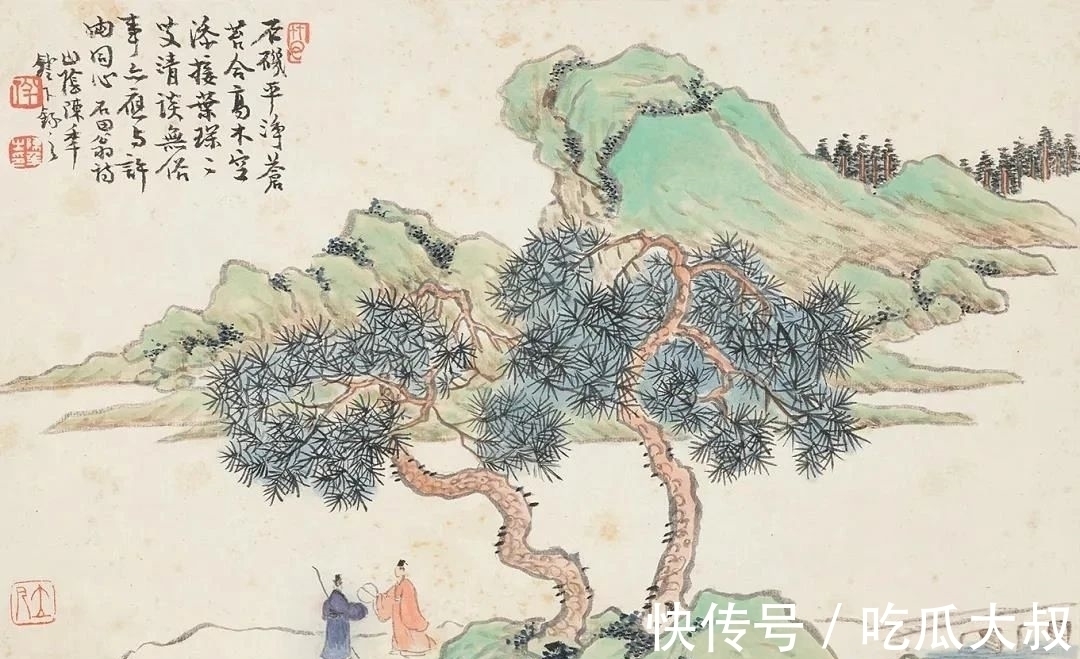 石磯平淨蒼
苔合高木空
添接葉深二
叟清談無俗
事應与許
由同心石田翁詩
山陰陳年
鐙下錄之
快传号/吃瓜大叔